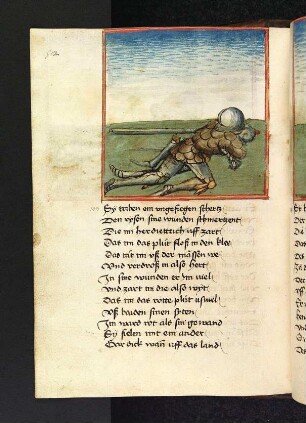 Sy triben ein ungefiegen schertz
Den rysen sine wunden schmertzent
Die im her dietterich uff zart
Das im das plůt floß in den klee
Das tät im uß der massen we
Und verdroß in also hert
In sine wunden er im viel
und zart im die also wyt
Das im das rotte plůt
Uß baiden sinen sÿten
Im ward rot als sin gewand
Sy fielen mit ein ander
Gar dick wan uff das land